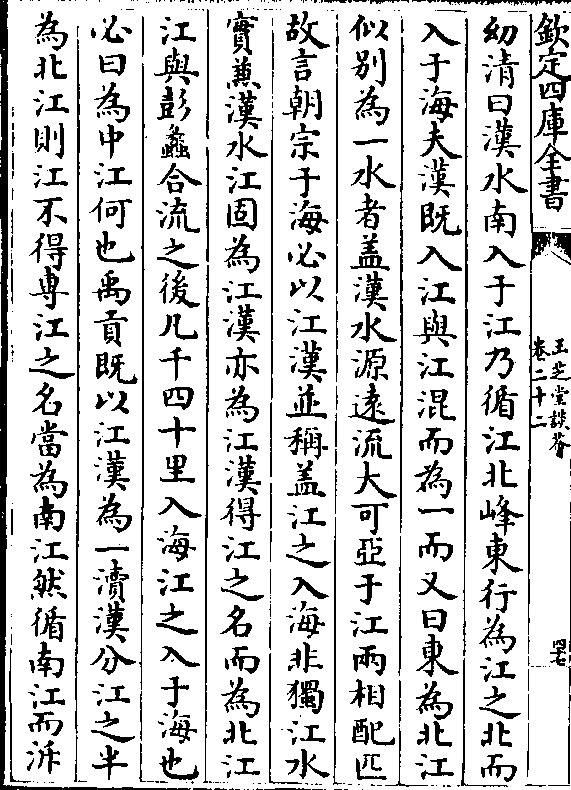 欽定四庫全書
玉芝堂談薈
卷二十二
四七
幼清曰漢水南入于江乃循江北峰東行為江之北而
入于海夫漢既入江與江混而為一而又曰東為北江
似别為一水者盖漢水源遠流大可亞于江兩相配匹
故言朝宗于海必以江漢並稱盖江之入海非獨江水
實蒹漢水江固為江漢亦為江漢得江之名而為北江
江與彭蠡合流之後凡千四十里入海江之入于海也
必曰為中江何也禹貢既以江漢為一瀆漢分江之半
為北江則江不得專江之名當為南江然循南江而泝